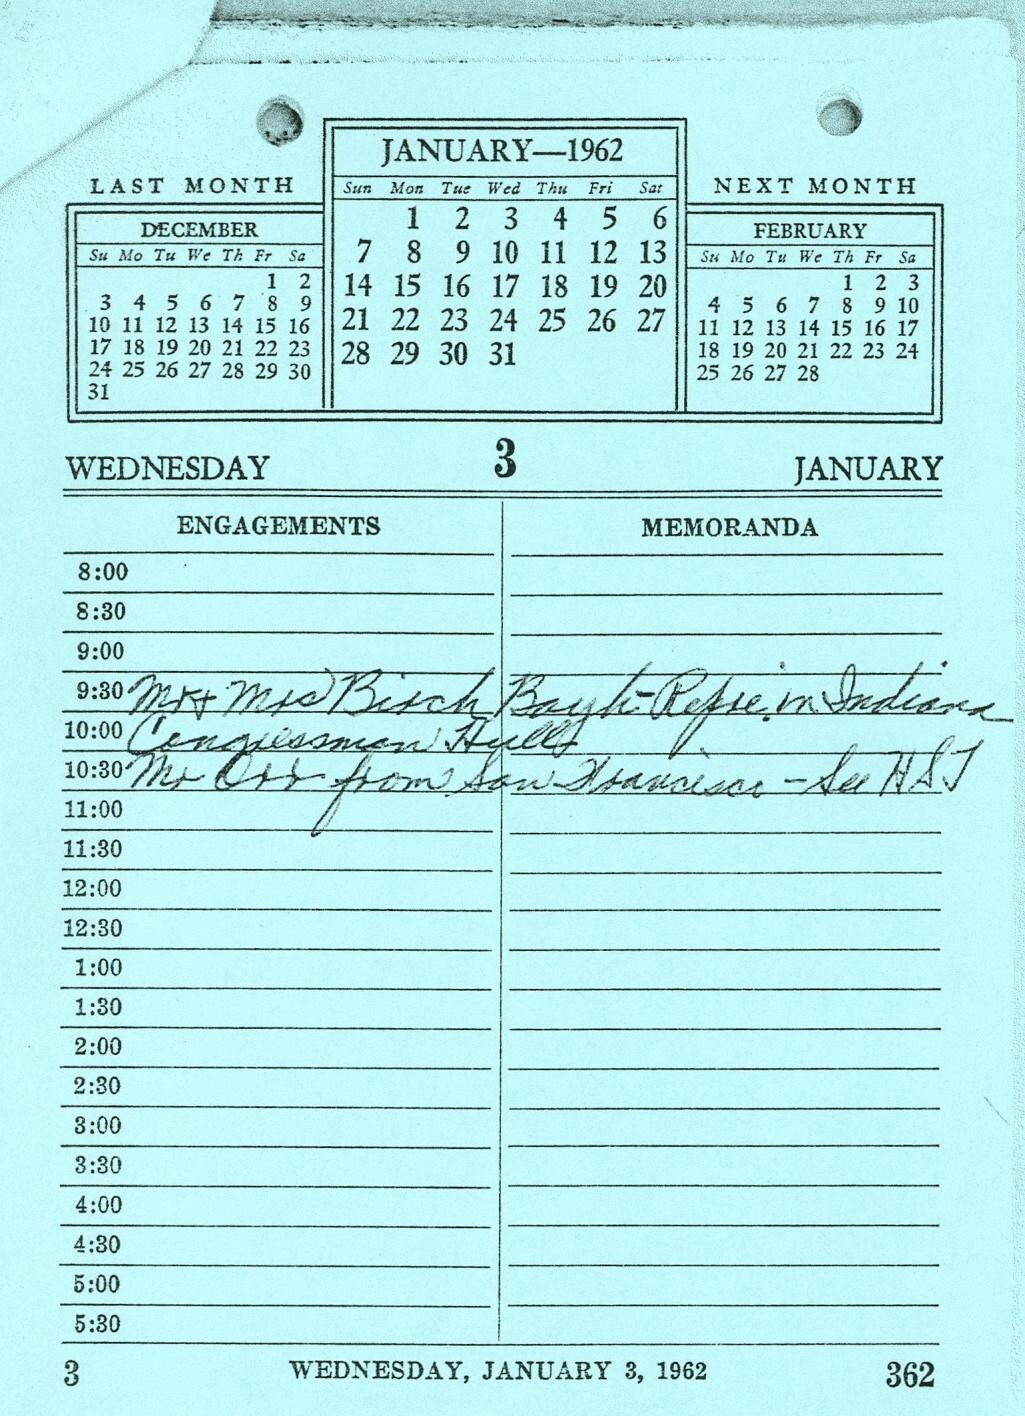 JANUARY—1962
LAST MONTH
NEXT MONTH
Sun Mon Tue Wed Thu Fri Sat
1 2 3 4 5 6
7 8 9 10 11 12 13
14 15 16 17 18 19 20
21 22 23 24 25 26 27
28 29 30 31
DECEMBER
Su Mo Tu We Th Fr Sa
1 2
3 4 5 6 7 8 9
10 11 12 13 14 15 16
17 18 19 20 21 22 23
24 25 26 27 28 29 30
31
FEBRUARY
Su Mo Tu We Th Fr Sa
1 2 3
4 5 6 7 8 9 10
11 12 13 14 15 16 17
18 19 20 21 22 23 24
25 26 27 28
WEDNESDAY 3 JANUARY
ENGAGEMENTS MEMORANDA
8:00
8:30
9:00
9:30 Mr + Mrs Birch Bayh - Repre. in Indiana
10:00 Congressman Hull
10:30 Mr Orr from San Francisco - See HST
11:00
11:30
12:00
12:30
1:00
1:30
2:00
2:30
3:00
3:30
4:00
4:30
5:00
5:30
3 WEDNESDAY, JANUARY 3, 1962 362